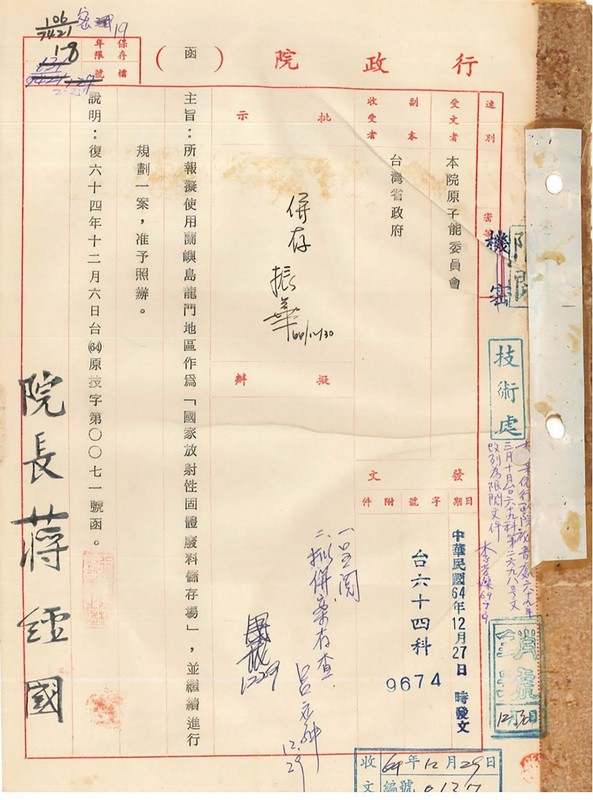 行政院
（函）
保存年限
檔號
106
7421
1-8
19
速別
密等
機密
限閱
技術處
受文者
本院原子能委員會
副本收受者
台灣省政府
批示
併存
振華
64/12/30
擬辦
一、呈閱
二、擬併案存查
12.29
1229
發文
日期
中華民國64年12月27日 時發文
字號
台六十四科
9674
附件
主旨：所報擬使用蘭嶼島龍門地區作為「國家放射性固體廢料儲存場」，並繼續進行
規劃一案，准予照辦。
說明：復六十四年十二月六日台(64)原技字第〇〇七一號函。
院長蔣經國
收文
64年12月29日
編號
0137